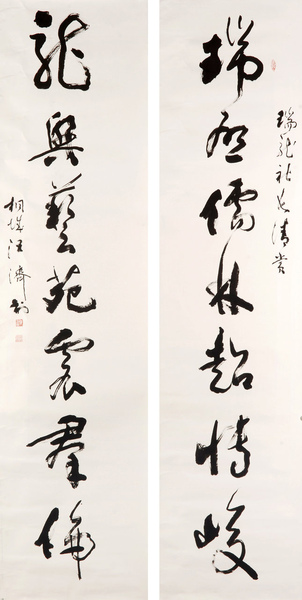 瑞龍社長清賞
瑞儒林博峻
龍興藝苑震羣倫
桐城汪濟